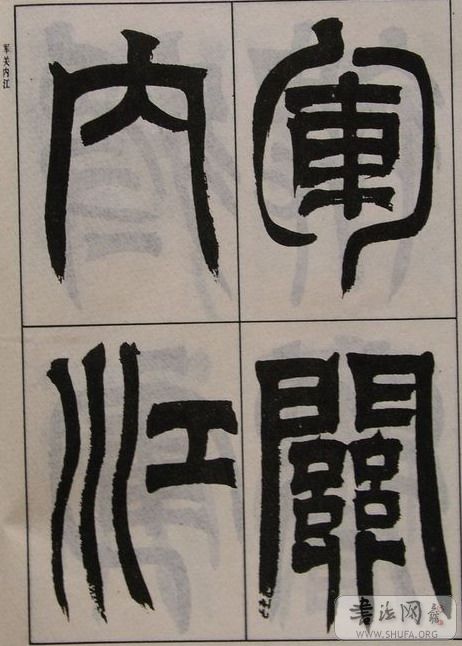 軍關
内江
军关内江
書法网
WWW.SHUFA.ORG